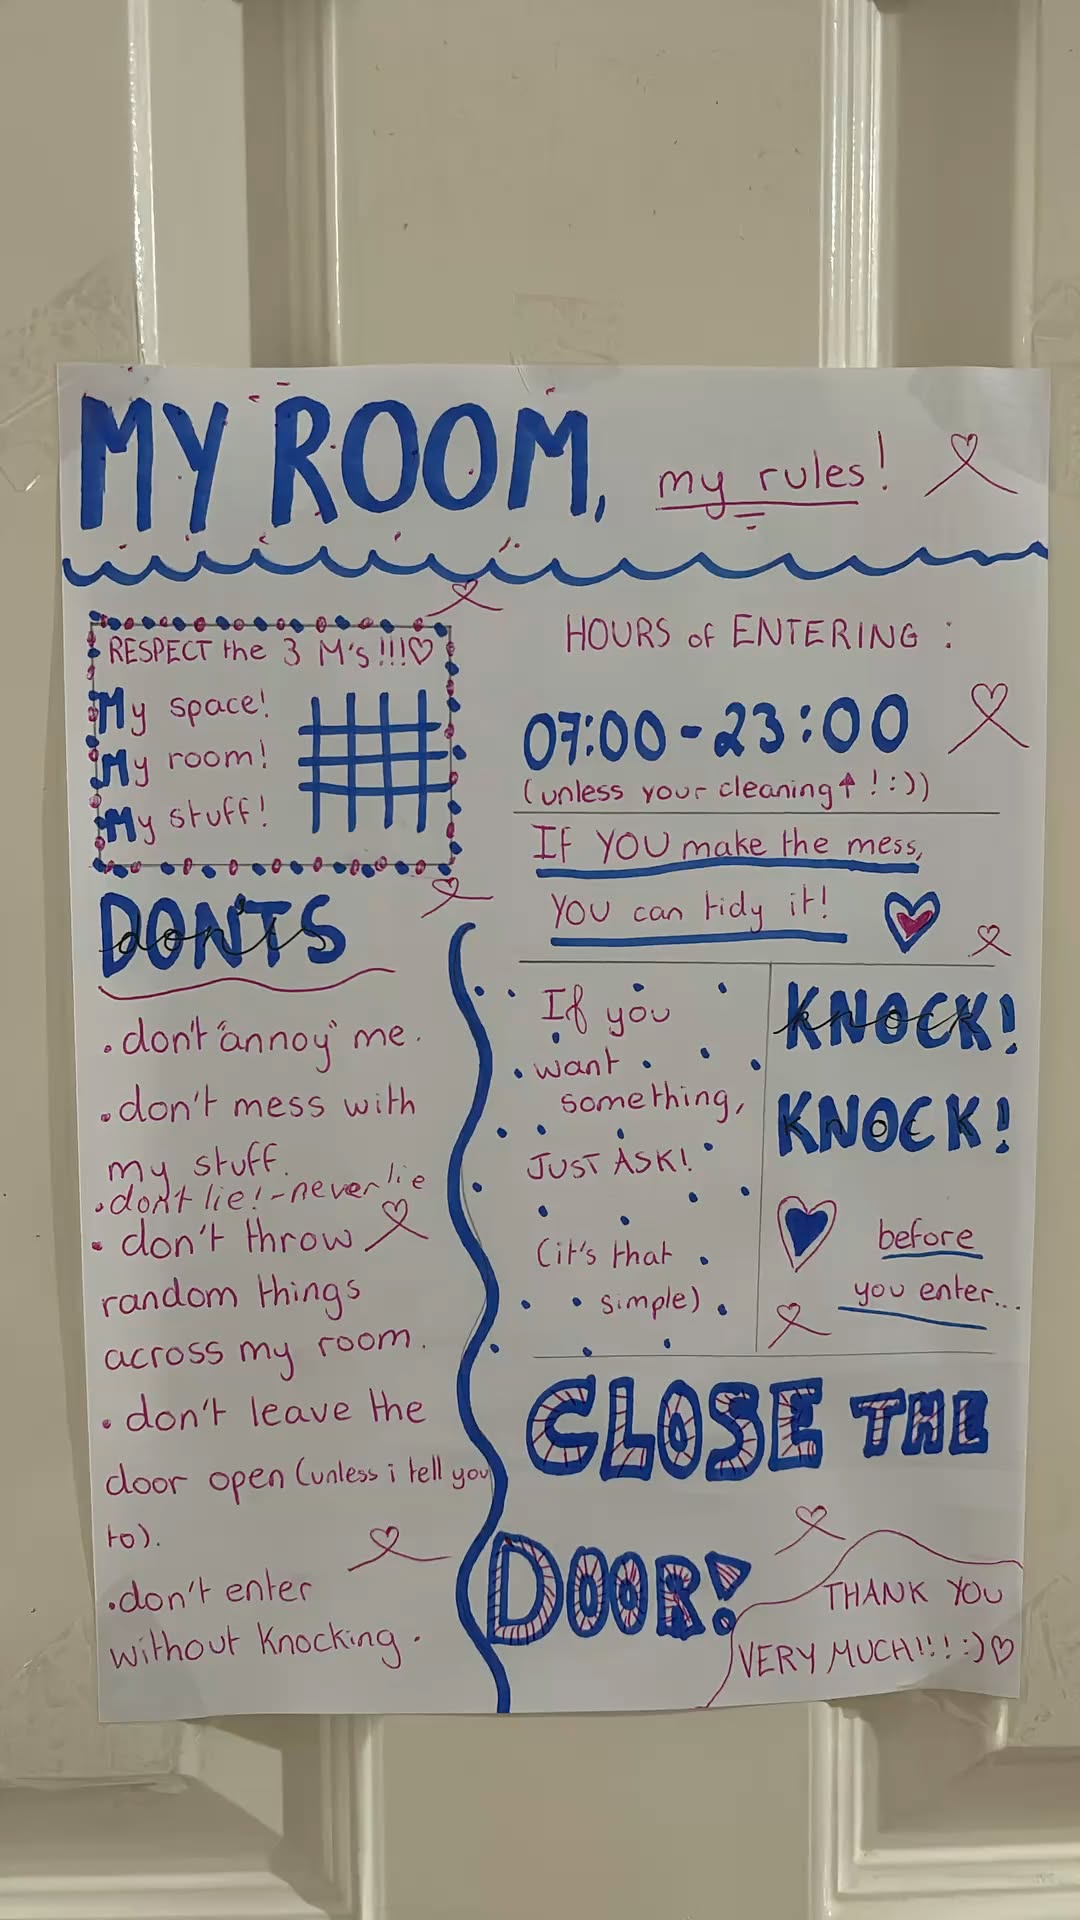 MY ROOM, my rules!
RESPECT the 3 M's!!!♡
My space!
My room!
My stuff!
HOURS of ENTERING :
07:00-23:00
(unless your cleaning↑!:))
If YOU make the mess,
YOU can tidy it!
DON'TS
don'ts
.don't "annoy" me.
.don't mess with
my stuff.
.don't lie!-never lie
. don't throw
random things
across my room.
. don't leave the
door open (unless i tell you
to).
.don't enter
without knocking.
If you
want
something,
JUST ASK!
(it's that
simple)
KNOCK!
knock
KNOCK!
before
you enter...
CLOSE THE
DOOR!
THANK YOU
VERY MUCH!!! :)♡